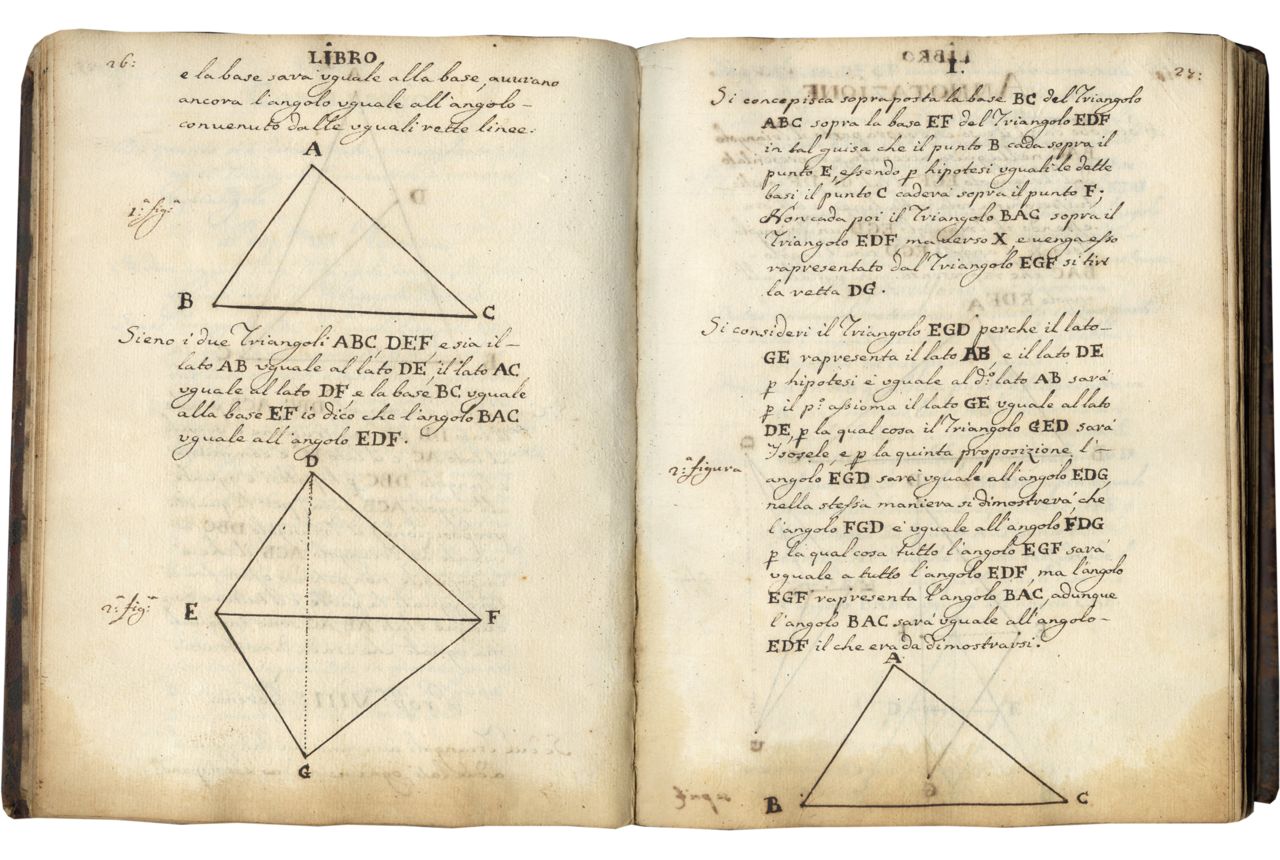 26:
LIBRO
e la base sarà vguale alla base, auurano
ancora l'angolo vguale all'angolo-
conuenuto dalle vguali rette linee:
A
1.ª fig.ª
B
C
Sieno i due Triangoli ABC, DEF, e sia il-
lato AB vguale al lato DE, il lato AC
vguale al lato DF, e la base BC vguale
alla base EF io dico che l'angolo BAC
vguale all'angolo EDF.
D
2.ª fig.ª
E
F
G
I.
27:
Si concepisca sopraposta la base BC del Triangolo
ABC sopra la base EF del Triangolo EDF
in tal guisa che il punto B cada sopra il
punto E, essendo p hipotesi vguali le dette
basi il punto C caderà sopra il punto F;
Non cada poi il Triangolo BAC sopra il
Triangolo EDF ma verso X, e uenga esso
rapresentato dal Triangolo EGF si tiri
la retta DG.
Si consideri il Triangolo EGD perche il lato-
GE rapresenta il lato AB, e il lato DE
p hipotesi è vguale al d.º lato AB sarà
p il p.º assioma il lato GE vguale al lato
DE, p la qual cosa il Triangolo GED sarà
Isosele, e p la quinta proposizione l'-
2.ª figura
angolo EGD sarà vguale all'angolo EDG,
nella stessa maniera si dimostrerà, che
l'angolo FGD è vguale all'angolo FDG
p la qual cosa tutto l'angolo EGF sarà
vguale a tutto l'angolo EDF, ma l'angolo
EGF rapresenta l'angolo BAC, adunque
l'angolo BAC sarà vguale all'angolo-
EDF il che era da dimostrarsi.
A
B
C